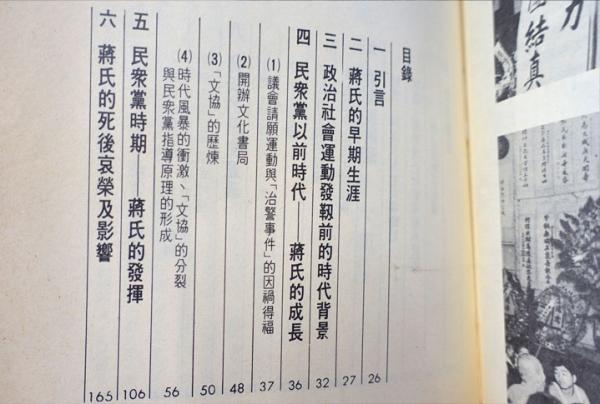 結真
目錄
一 引言 26
二 蔣氏的早期生涯 27
三 政治社會運動發靱前的時代背景 32
四 民衆黨以前時代——蔣氏的成長 36
⑴ 議會請願運動與「治警事件」的因禍得福 37
⑵ 開辦文化書局 48
⑶「文協」的歷煉 50
⑷ 時代風暴的衝激、「文協」的分裂
與民衆黨指導原理的形成 56
五 民衆黨時期——蔣氏的發揮 106
六 蔣氏的死後哀榮及影響 165